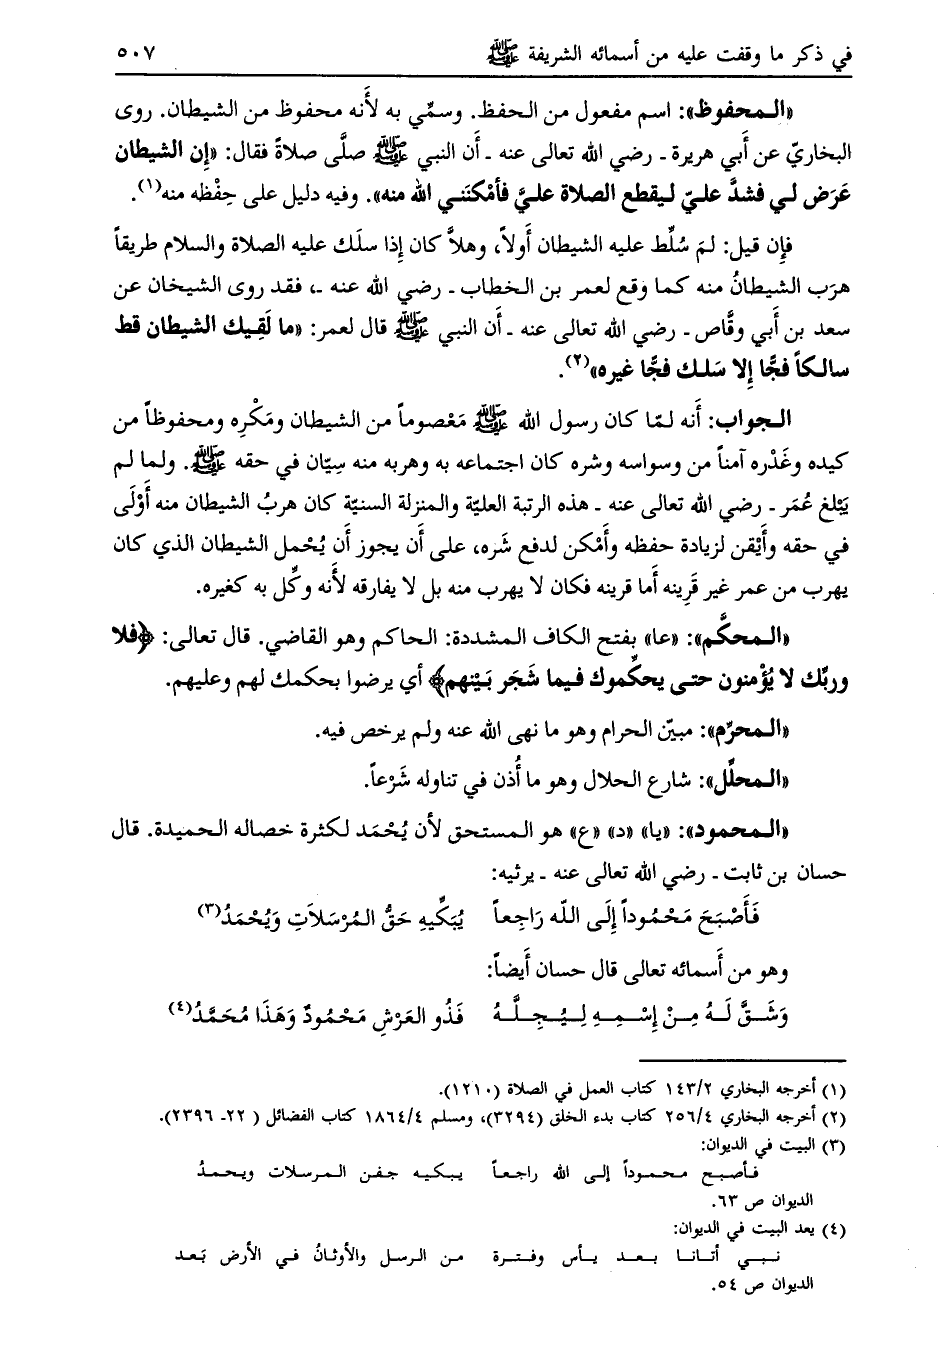 في ذكر ما وقفت عليه من أسمائه الشريفة ﷺ ٥٠٧
«المحفوظ»: اسم مفعول من الحفظ. وسمّي به لأَنه محفوظ من الشيطان. روى
البخاريّ عن أَبي هريرة ـ رضي الله تعالى عنه ـ أَن النبي ﷺ صلَّى صلاةً فقال: «إِن الشيطان
عَرَض لي فشدَّ عليّ ليقطع الصلاة عليَّ فأَمْكنَني الله منه». وفيه دليل على حِفْظه منه(١).
فإِن قيل: لمَ سُلِّط عليه الشيطان أَولاً، وهلاَّ كان إِذا سلَك عليه الصلاة والسلام طريقاً
هرَب الشيطانُ منه كما وقع لعمر بن الخطاب ـ رضي الله عنه ـ، فقد روى الشيخان عن
سعد بن أَبي وقَّاص ـ رضي الله تعالى عنه ـ أَن النبي ﷺ قال لعمر: «ما لَقِيك الشيطان قط
سالكاً فجًّا إِلا سَلك فجًّا غيره»(٢).
الجواب: أَنه لمّا كان رسول الله ﷺ مَعْصوماً من الشيطان ومَكْرِه ومحفوظاً من
كيده وغَدْره آمناً من وسواسه وشره كان اجتماعه به وهربه منه سِيّان في حقه ﷺ. ولما لم
يَبْلغ عُمَر ـ رضي الله تعالى عنه ـ هذه الرتبة العليّة والمنزلة السنيّة كان هربُ الشيطان منه أَوْلَى
في حقه وأَيْقن لزيادة حفظه وأَمْكن لدفع شَره، على أَن يجوز أَن يُحْمل الشيطان الذي كان
يهرب من عمر غير قَرِينه أَما قرينه فكان لا يهرب منه بل لا يفارقه لأَنه وكِّل به كغيره.
«المحكَّم»: «عا» بفتح الكاف المشددة: الحاكم وهو القاضي. قال تعالى: ﴿فلا
وربِّك لا يُؤْمنون حتى يحكِّموك فيما شَجَر بَيْنهم﴾ أي يرضوا بحكمك لهم وعليهم.
«المحرِّم»: مبيّن الحرام وهو ما نهى الله عنه ولم يرخص فيه.
«المحلِّل»: شارع الحلال وهو ما أُذن في تناوله شَرْعاً.
«المحمود»: «يا» «د» «ع» هو المستحق لأن يُحْمَد لكثرة خصاله الحميدة. قال
حسان بن ثابت ـ رضي الله تعالى عنه ـ يرثيه:
فَأَصْبَحَ مَحْمُوداً إِلَى اللّه رَاجِعاً يُبَكِّيهِ حَقُّ المُرْسَلاَتِ وَيُحْمَدُ(٣)
وهو من أَسمائه تعالى قال حسان أَيضاً:
وَشَقَّ لَهُ مِنْ إِسْمِهِ لِيُجِلَّهُ فَذُو العَرْشِ مَحْمُودٌ وَهَذَا مُحَمَّدُ(٤)
(١) أخرجه البخاري ١٤٣/٢ كتاب العمل في الصلاة (١٢١٠).
(٢) أخرجه البخاري ٢٥٦/٤ كتاب بدء الخلق (٣٢٩٤)، ومسلم ١٨٦٤/٤ كتاب الفضائل ( ٢٢- ٢٣٩٦).
(٣) البيت في الديوان:
فأصبح محموداً إلى الله راجعاً يبكيه جفن المرسلات ويحمدُ
الديوان ص ٦٣.
(٤) يعد البيت في الديوان:
نبي أتانا بعد يأس وفترة من الرسل والأوثانُ في الأرض بَعد
الديوان ص ٥٤.